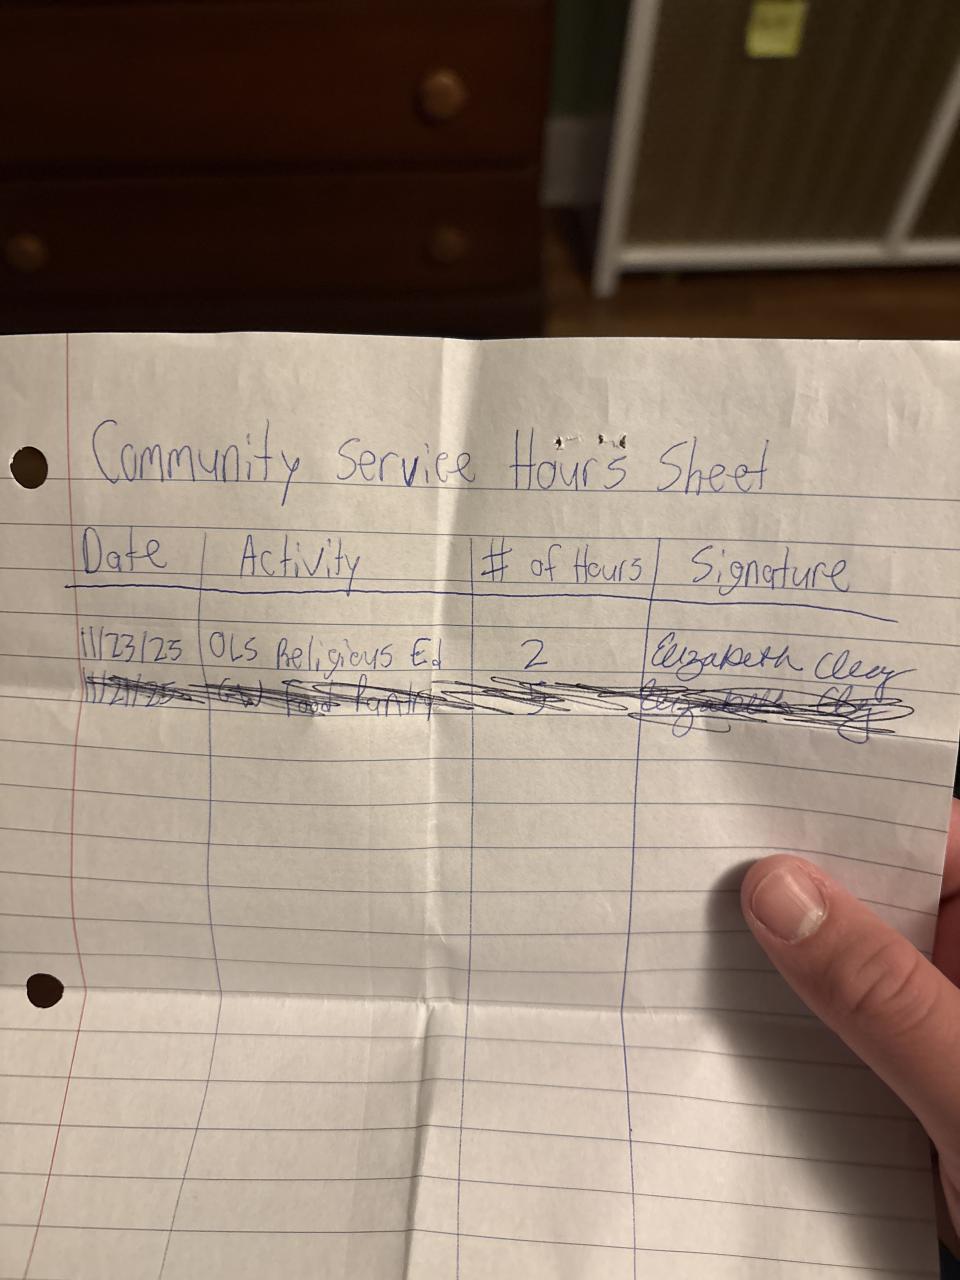 Community Service Hours Sheet
Date Activity # of Hours Signature
11/23/25 OLS Religious Ed 2 Elizabeth Cleary
Food Pantry Elizabeth